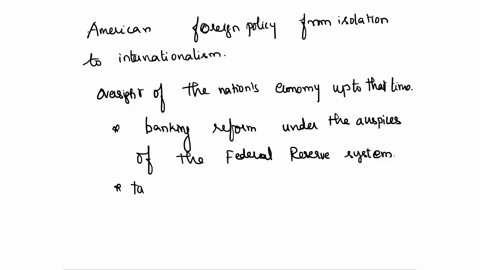 American foreign policy from isolation
to internationalism.
Oversight of the nation's economy up to that time.
* banking reform under the auspices
of the Federal Reserve system.
* ta